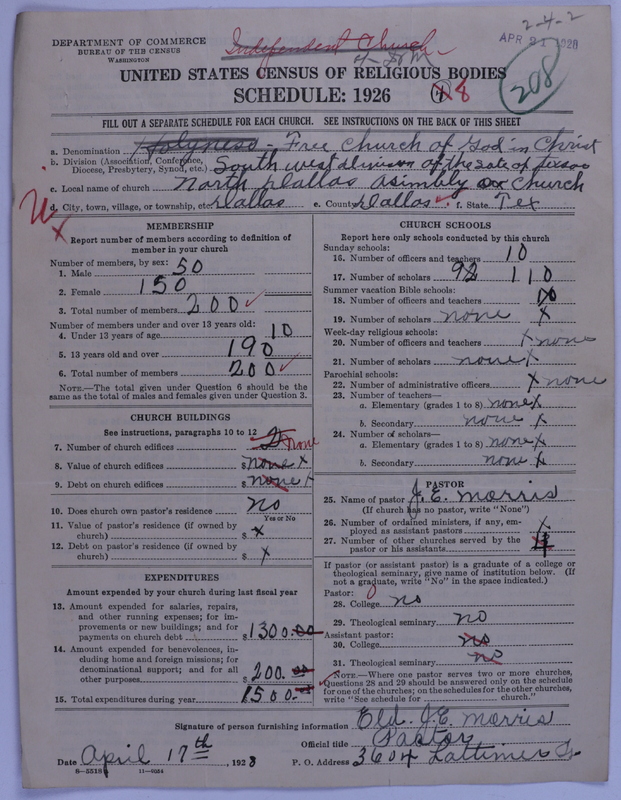 2-4-2
DEPARTMENT OF COMMERCE
BUREAU OF THE CENSUS
WASHINGTON
Independent Church
APR 21 1928
208
UNITED STATES CENSUS OF RELIGIOUS BODIES
SCHEDULE: 1926
8
FILL OUT A SEPARATE SCHEDULE FOR EACH CHURCH. SEE INSTRUCTIONS ON THE BACK OF THIS SHEET
a. Denomination Holyness - Free Church of God in Christ
b. Division (Association, Conference, Diocese, Presbytery, Synod, etc.) South west division of the state of
c. Local name of church North Dallas Asimbly Church
d. City, town, village, or township, etc. Dallas e. County Dallas f. State Tex
MEMBERSHIP
Report number of members according to definition of member in your church
Number of members, by sex:
1. Male 50
2. Female 150
3. Total number of members 200
Number of members under and over 13 years old:
4. Under 13 years of age 10
5. 13 years old and over 190
6. Total number of members 200
NOTE.—The total given under Question 6 should be the same as the total of males and females given under Question 3.
CHURCH BUILDINGS
See instructions, paragraphs 10 to 12
7. Number of church edifices 2 none
8. Value of church edifices $ none x
9. Debt on church edifices $ none x
10. Does church own pastor's residence? No
Yes or No
11. Value of pastor's residence (if owned by church) $ x
12. Debt on pastor's residence (if owned by church) $ x
EXPENDITURES
Amount expended by your church during last fiscal year
13. Amount expended for salaries, repairs, and other running expenses; for improvements or new buildings; and for payments on church debt $1300.00
14. Amount expended for benevolences, including home and foreign missions; for denominational support; and for all other purposes $200.00
15. Total expenditures during year $1500.00
CHURCH SCHOOLS
Report here only schools conducted by this church
Sunday schools:
16. Number of officers and teachers 10
17. Number of scholars 92 110
Summer vacation Bible schools:
18. Number of officers and teachers 10
19. Number of scholars none x
Week-day religious schools:
20. Number of officers and teachers x none
21. Number of scholars none x
Parochial schools:
22. Number of administrative officers x none
23. Number of teachers—
a. Elementary (grades 1 to 8) none x
b. Secondary none x
24. Number of scholars—
a. Elementary (grades 1 to 8) none x
b. Secondary none x
PASTOR
25. Name of pastor J. E. Morris
(If church has no pastor, write "None")
26. Number of ordained ministers, if any, employed as assistant pastors x
27. Number of other churches served by the pastor or his assistants
If pastor (or assistant pastor) is a graduate of a college or theological seminary, give name of institution below. (If not a graduate, write "No" in the space indicated.)
Pastor:
28. College no
29. Theological seminary no
Assistant pastor:
30. College no
31. Theological seminary no
NOTE.—Where one pastor serves two or more churches, Questions 28 and 29 should be answered only on the schedule for one of the churches; on the schedules for the other churches, write "See schedule for ............ church."
Signature of person furnishing information Eld. J. E. Morris
Official title Pastor
Date April 17th, 1928 P. O. Address 3604 Lattimer St
8—5518 11—9054